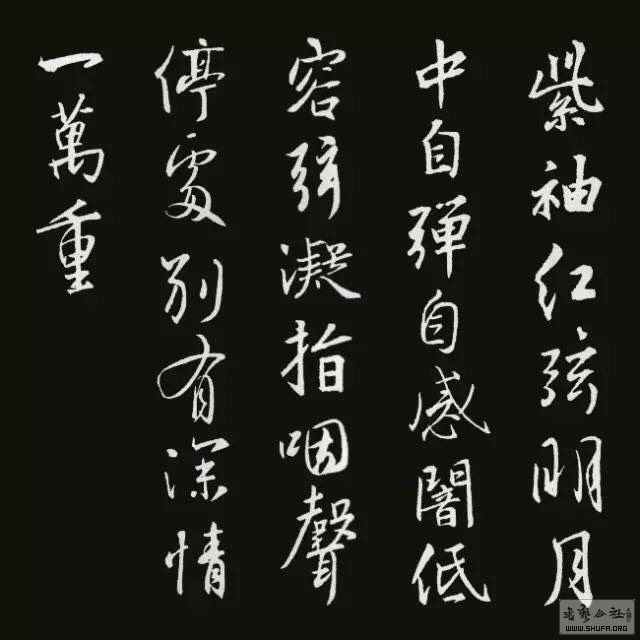 紫袖红弦明月
中自弹自感闇低
容弦凝指咽聲
停處别有深情
一萬重
書藝公社
WWW.SHUFA.ORG